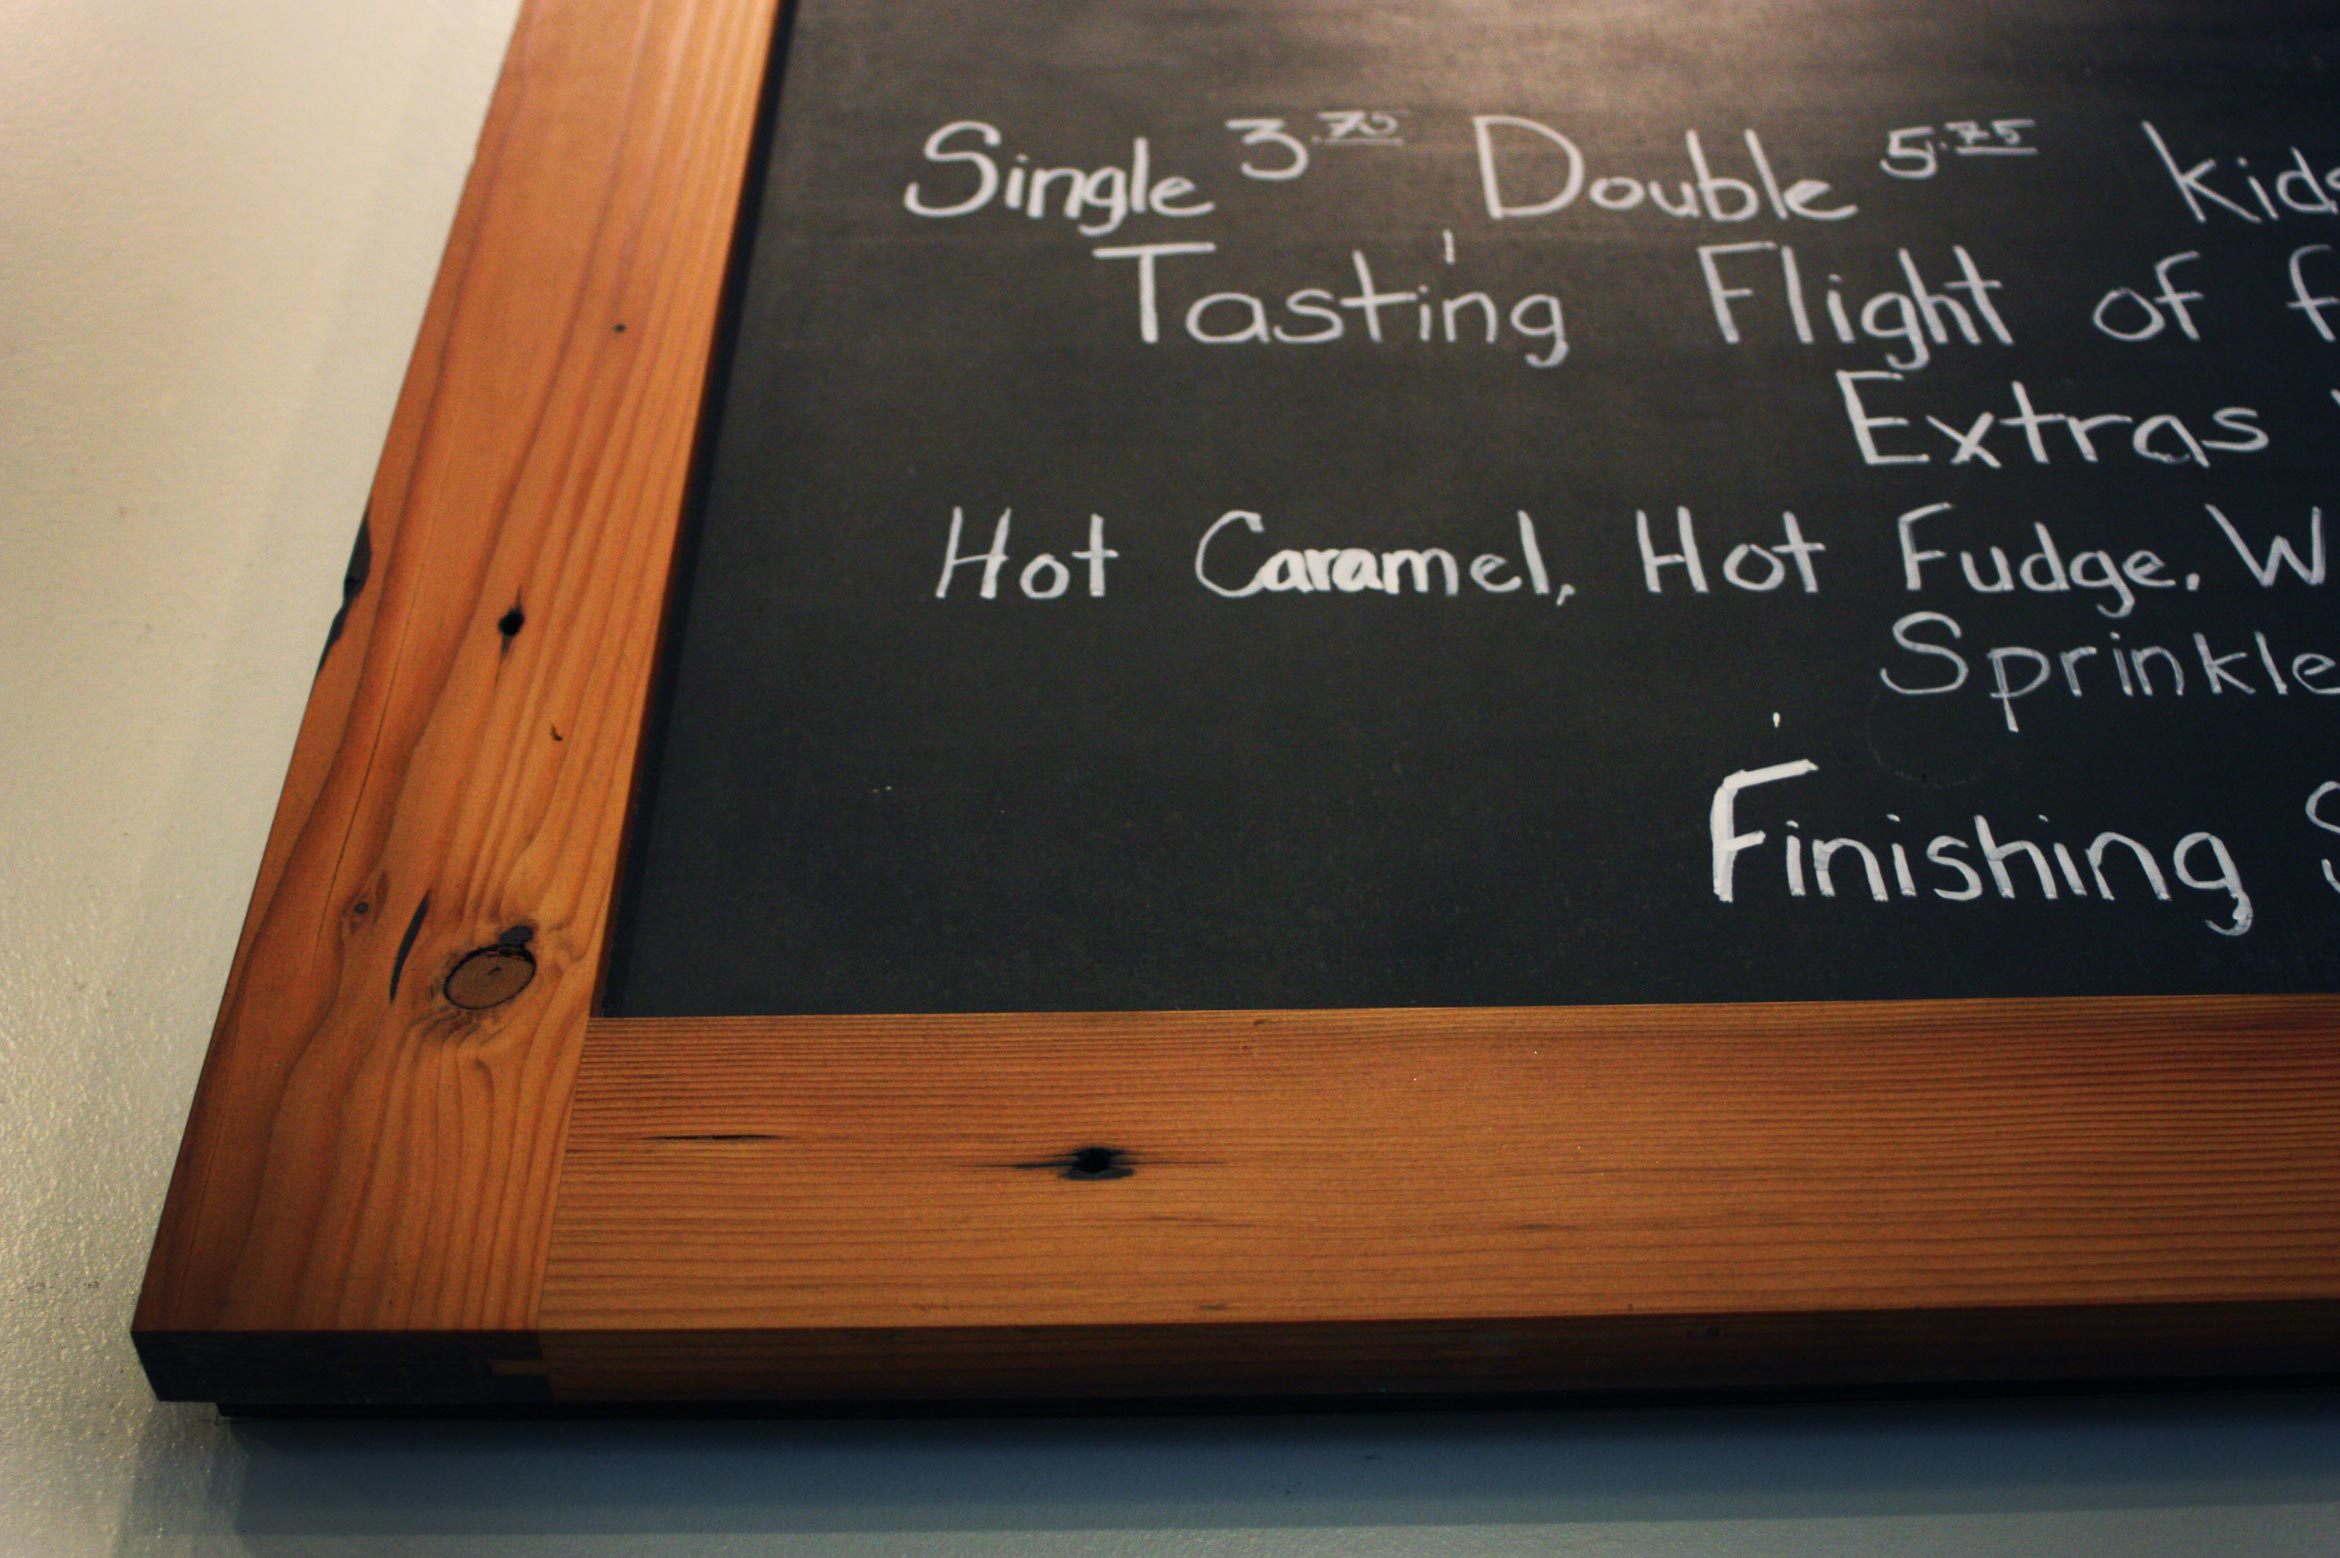 Single 3.75 Double 5.75 kids
Tasting Flight of f
Extras
Hot Caramel, Hot Fudge. W
Sprinkle
Finishing S